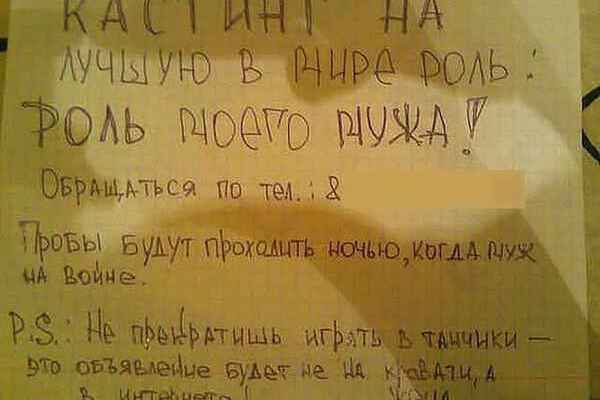 КАСТИНГ НА
ЛУЧШУЮ В МИРЕ РОЛЬ:
РОЛЬ МОЕГО МУЖА!
ОБРАЩАТЬСЯ ПО ТЕЛ.: 8
ПРОБЫ БУДУТ ПРОХОДИТЬ НОЧЬЮ, КОГДА МУЖ
НА ВОЙНЕ.
P.S.: НЕ ПРЕКРАТИШЬ ИГРАТЬ В ТАНЧИКИ —
ЭТО ОБЪЯВЛЕНИЕ БУДЕТ НЕ НА КРОВАТИ, А
В ИНТЕРНЕТЕ! ЖЕНА